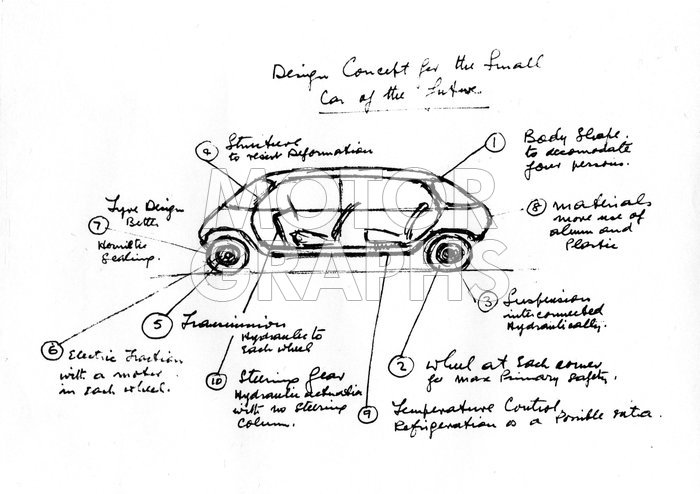 Design Concept for the Small
Car of the Future.
1 Body Shape.
to accomodate
four persons.
4 Structure
to resist Deformation
8 Materials
more use of
alum and
Plastic
7 Tyre Design
Better
Sealing.
3 Suspension
interconnected
Hydraulically.
5 Transmission
Hydraulic to
Each wheel
6 Electric Traction
with a motor
in Each wheel.
2 Wheel at Each corner
for max Primary safety.
10 Steering Gear
Hydraulic actuation
with no Steering
Column.
9 Temperature Control
Refrigeration as a Possible extra.
MOTOR
GRAPHS